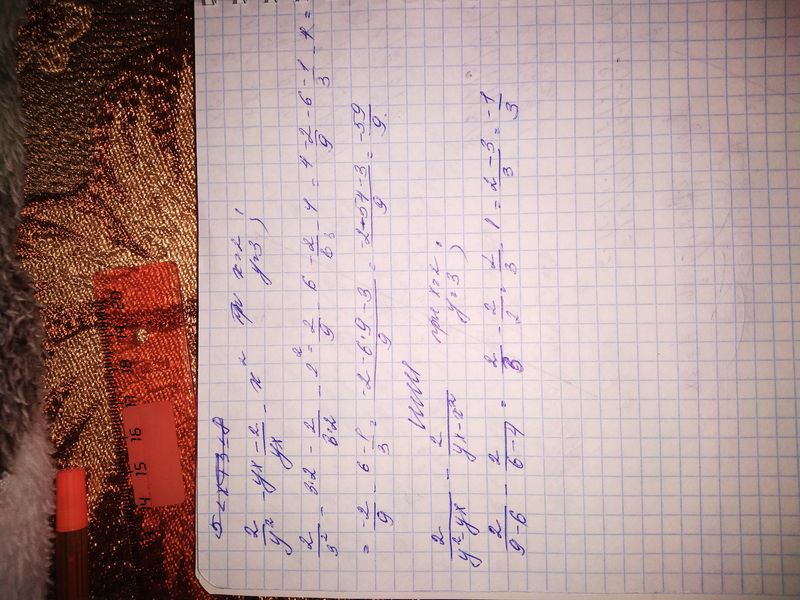 2/y² - yx - 2/yx - x² при x=2; y=3
2/3² - 3·2 - 2/3·2 - 2² = 2/9 - 6 - 2/6 - 4 = 4 - 2/9 - 6 - 1/3 - 4 =
= -2/9 - 6 - 1/3 = -2-6·9-3/9 = -2-54-3/9 = -59/9
или
2/y²-yx - 2/yx-x² при x=2; y=3
2/9-6 - 2/6-4 = 2/3 - 2/2 = 2/3 - 1 = 2-3/3 = -1/3
15 16 17 18